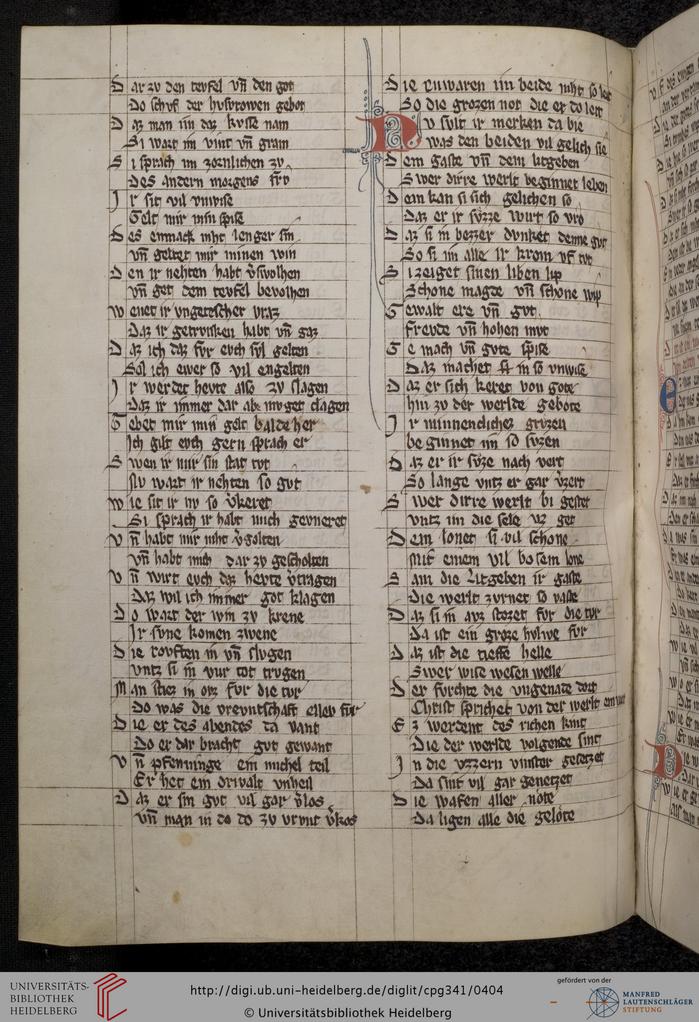 D ar zv den tevfel vn̄ den got
Do schvf der hvsvrowen gebot
D az man im daz kvsse nam
Si wart im vint vn̄ gram
S i sprach im zornlichen zv
Des andern morgens frv
J r sit vil vnwise
Gelt mir min spise
D es enmack niht lenger sin
vn̄ geltet mir minen win
D en ir nehten habt v̄swolhen
vn̄ get dem tevfel bevolhen
W enet ir vngetescher vraz
Daz ir getrvnken habt vn̄ gaz
D az ich daz fvr evch svl gelten
Sol ich ewer so vil engelten
J r werdet hevte also zv slagen
Daz ir immer dar abe mvget clagen
G ebet mir min gelt balde her
Ich gilt evch gern sprach er
S wen ir mir sin stat tvt
Nv wart ir nehten so gvt
W ie sit ir nv so v̄keret
Si sprach ir habt mich gevneret
V n̄ habt mir niht v̄golten
vn̄ habt mich dar zv gescholten
V n̄ wirt evch daz hevte v̄tragen
Daz wil ich immer got klagen
D o wart der win zv krene
Ir svne komen zwene
D ie rovften in vn̄ slvgen
vntz si in vur tot trvgen
M an stiez in orz fvr die tvr
Do was die vrevntschaft ellev fvr
D ie er des abendes da vant
Do er dar bracht gvt gewant
V n̄ pfenninge ein michel teil
Er het ein drivalt vnheil
D az er sin gvt vil gar v̄los
vn̄ man in do do zv vrvnt v̄kos
D ie enwaren im beide niht so leit
So die grozen not die er do leit
N v svlt ir merken da bie
was den beiden vil gelich sie
D em gaste vn̄ dem litgeben
Swer dirre werlt beginnet leben
D em kan si sich gelichen so
Daz er ir svzze wirt so vro
D az si in bezzer dvnket denne gvt
So si im alle ir krom vf tvt
S i zeiget sinen liben lip
Schone magde vn̄ schone wip
G ewalt ere vn̄ gvt
frevde vn̄ hohen mvt
G e mach vn̄ gvte spise
Daz machet si in so vnwise
D az er sich keret von gote
hin zv der werlde gebote
J r minnenclichez grvzen
beginnet im so svzen
D az er ir svze nach vert
So lange vntz er gar v̄zert
S wer dirre werlt bi gestet
vntz im die sele vz get
D em lonet si vil schone
Mit einem vil bosem lone
S am die Litgeben ir gaste
die werlt zvrnet so vaste
D az si in avz stozet fvr die tvr
Da ist ein groze hvlwe fvr
D az ist die tieffe helle
Swer wise wesen welle
D er fvrchte die vngenade dort
Christ sprichet von der werlt ein wort
E z werdent des richen kint
Die der werlde volgende sint
J n die vzzern vinster gesetzet
Da sint vil gar genetzet
D ie wafen aller note
Da ligen alle die gelote
UNIVERSITÄTS-
BIBLIOTHEK
HEIDELBERG
http://digi.ub.uni-heidelberg.de/diglit/cpg341/0404
© Universitätsbibliothek Heidelberg
gefördert von der
MANFRED
LAUTENSCHLÄGER
STIFTUNG